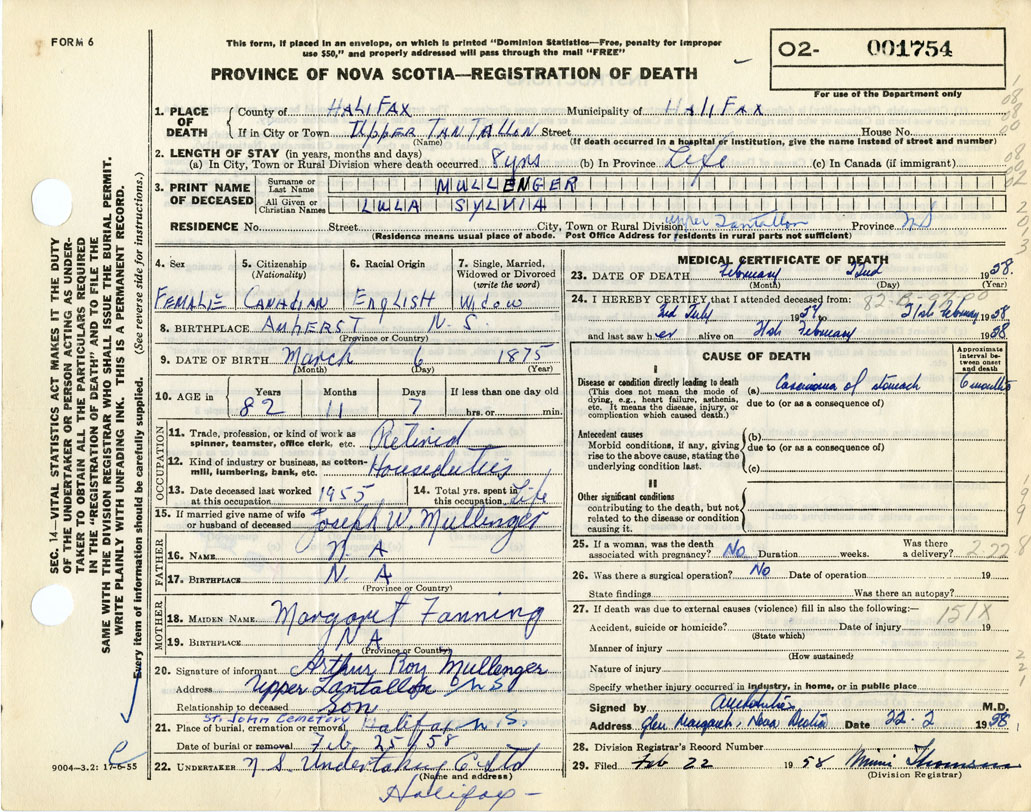 FORM 6
This form, if placed in an envelope, on which is printed "Dominion Statistics—Free, penalty for improper
use $50," and properly addressed will pass through the mail "FREE"
PROVINCE OF NOVA SCOTIA—REGISTRATION OF DEATH
O2- 001754
For use of the Department only
SEC. 14—VITAL STATISTICS ACT MAKES IT THE DUTY
OF THE UNDERTAKER OR PERSON ACTING AS UNDER-
TAKER TO OBTAIN ALL THE PARTICULARS REQUIRED
IN THE "REGISTRATION OF DEATH" AND TO FILE THE
SAME WITH THE DIVISION REGISTRAR WHO SHALL ISSUE THE BURIAL PERMIT.
WRITE PLAINLY WITH UNFADING INK. THIS IS A PERMANENT RECORD.
Every item of information should be carefully supplied. (See reverse side for instructions.)
1. PLACE OF DEATH
County of HALIFAX Municipality of HALIFAX
If in City or Town UPPER TANTALLON Street House No.
(Name) (If death occurred in a hospital or institution, give the name instead of street and number)
2. LENGTH OF STAY (in years, months and days)
(a) In City, Town or Rural Division where death occurred 8 yrs (b) In Province Life (c) In Canada (if immigrant)
3. PRINT NAME OF DECEASED
Surname or Last Name MULLENGER
All Given or Christian Names LULA SYLVIA
RESIDENCE No. Street City, Town or Rural Division Upper Tantallon Province NS
(Residence means usual place of abode. Post Office Address for residents in rural parts not sufficient)
4. Sex 5. Citizenship (Nationality) 6. Racial Origin 7. Single, Married, Widowed or Divorced (write the word)
FEMALE CANADIAN ENGLISH WIDOW
8. BIRTHPLACE AMHERST N. S.
(Province or Country)
9. DATE OF BIRTH March 6 1875
(Month) (Day) (Year)
10. AGE in Years Months Days If less than one day old
82 11 7 hrs. or min.
OCCUPATION
11. Trade, profession, or kind of work as spinner, teamster, office clerk, etc. Retired
12. Kind of industry or business, as cotton-mill, lumbering, bank, etc. Houseduties
13. Date deceased last worked at this occupation 1955 14. Total yrs. spent in this occupation Life
15. If married give name of wife or husband of deceased Joseph W. Mullenger
FATHER
16. NAME N A
17. BIRTHPLACE N. A
(Province or Country)
MOTHER
18. MAIDEN NAME Margaret Fanning
19. BIRTHPLACE N A
(Province or Country)
20. Signature of informant Arthur Roy Mullenger
Address Upper Tantallon NS
Relationship to deceased Son
21. Place of burial, cremation or removal St. John Cemetery Halifax N.S.
Date of burial or removal Feb 25/58
22. UNDERTAKER N S. Undertaking C Ltd
(Name and address)
Halifax —
9004—3.2: 17-6-55
MEDICAL CERTIFICATE OF DEATH
23. DATE OF DEATH February 22nd 1958.
(Month) (Day) (Year)
24. I HEREBY CERTIFY that I attended deceased from:
July 1957 to 21st February 1958
and last saw her alive on 21st February 1958
CAUSE OF DEATH
Approximate interval between onset and death
I
Disease or condition directly leading to death
(This does not mean the mode of dying, e.g., heart failure, asthenia, etc. It means the disease, injury, or complication which caused death.)
(a) Carcinoma of stomach 6 months
due to (or as a consequence of)
Antecedent causes
Morbid conditions, if any, giving rise to the above cause, stating the underlying condition last.
(b)
due to (or as a consequence of)
(c)
II
Other significant conditions
contributing to the death, but not related to the disease or condition causing it.
25. If a woman, was the death associated with pregnancy? No Duration weeks. Was there a delivery?
26. Was there a surgical operation? No Date of operation 19
State findings Was there an autopsy?
27. If death was due to external causes (violence) fill in also the following:—
151X
Accident, suicide or homicide? Date of injury 19
(State which)
Manner of injury
(How sustained)
Nature of injury
Specify whether injury occurred in industry, in home, or in public place
Signed by M.D.
Address Glen Margaret, Nova Scotia Date 22.2 1958
28. Division Registrar's Record Number
29. Filed Feb 22 1958
(Division Registrar)